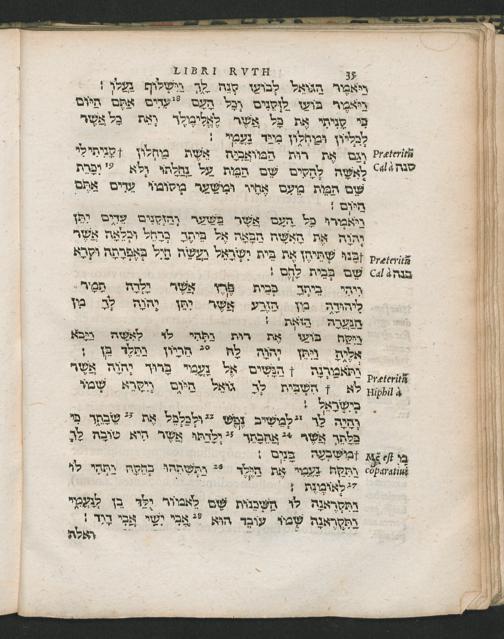 LIBRI RVTH 35
ויאמר הגואל לבועז קנה לך וישלוף נעלו :
ויאמר בועז לזקנים וכל העם 18 עדים אתם היום
כי קניתי את כל אשר לאלימלך ואת כל אשר
לכליון ומחלון מיד נעמי :
וגם את רות המואביה אשת מחלון † קניתי לי
Præteritũ
לאשה להקים שם המת על נחלתו ולא 19 יכרת
Cal à קנה
שם המת מעם אחיו ומשער מקומו עדים אתם
היום :
ויאמרו כל העם אשר בשער והזקנים עדים יתן
יהוה את האשה הבאה אל ביתך כרחל וכלאה אשר
† בנו שתיהן את בית ישראל ועשה חיל באפרתה וקרא
Præteritũ
שם בבית לחם :
Cal à בנה
ויהי ביתך כבית פרץ אשר ילדה תמר
ליהודה מן הזרע אשר יתן יהוה לך מן
הנערה הזאת :
ויקח בועז את רות ותהי לו לאשה ויבא
אליה ויתן יהוה לה 20 הריון ותלד בן :
ותאמרנה † הנשים אל נעמי ברוך יהוה אשר
לא † השבית לך גואל היום ויקרא שמו
Præteritũ
Hiphil à
בישראל :
והיה לך 21 למשיב נפש 22 ולכלכל את 23 שבתך כי
כלתך אשר 24 אהבתך 25 ילדתו אשר היא טובה לך
† משבעה בנים :
מ est
cõparatiuũ
ותקח נעמי את הילד 26 ותשתהו בחקה ותהי לו
27 לאומנת :
ותקראנה לו השכנות שם לאמור ילד בן לנעמי
ותקראנה שמו עובד הוא 28 אבי ישי אבי דוד :
ואלה